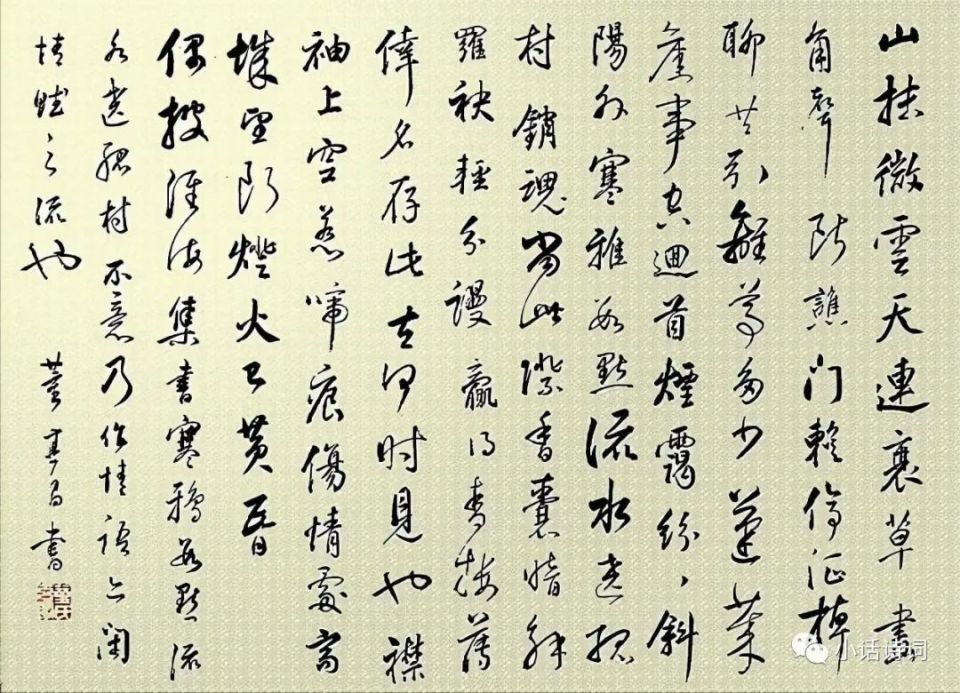 山抹微雲天連衰草畫
角聲断譙门暫停征棹
聊共引離尊多少蓬莱
舊事空迴首煙靄紛〻斜
陽外寒雅數點流水遶孤
村銷魂當此際香囊暗解
羅袂輕分謾贏得青楼薄
倖名存此去何时見也襟
袖上空惹啼痕傷情處高
城望断燈火已黄昏
偶披淮海集書寒鴉數點流
水遶孤村不意乃作情語亦闲
情賦之流也 董其昌書
小话诗词